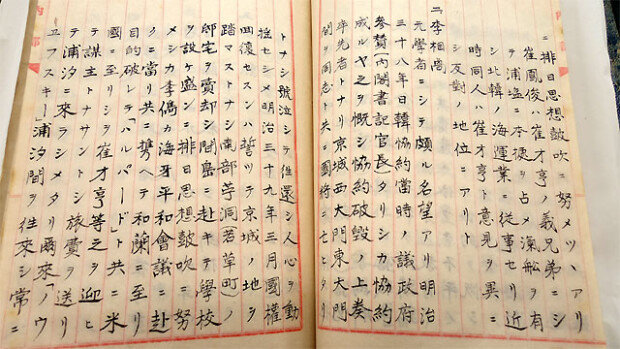 ニ排日思想鼓吹ニ努メツヽアリ
崔鳳俊ハ崔才亨ノ義兄弟ニシ
テ浦塩ニ本據ヲ占メ汽舩ヲ有
シ北韓海運業ニ従事セリ近
時同人ハ崔才亨ト意見ヲ異ニ
シ反對ノ地位ニアリ
二、李相卨
元學者ニシテ頗ル名望アリ明治
三十八年日韓協約當時ノ議政府
參賛(内閣書記官長)タリシカ協約
成ルヤ之ヲ慨シ協約破毀ノ上奏
率先者トナリ京城西大門東大門
間ヲ同志ト共ニ國將ニ亡ヒタリ
トナシ號泣シテ往還シ人心ヲ動
揺セシメ明治三十九年三月國權
回復セスンハ誓ツテ京城ノ地ヲ
踏マストナシ南部芋洞(若草町)ノ
邸宅ヲ賣却シ間島ニ赴キテ學校
ヲ設ケ盛ンニ排日思想鼓吹ニ努
メシカ李儁カ海牙平和會議ニ赴
クニ當リ共ニ携ヘテ和蘭ニ至リ
目的破レテ「ハルバード」ト共ニ米
國ニ至リシヲ崔才亨等之ヲ迎ヒ
テ謀主トナサントシ旅費ヲ送リ
テ浦汐ニ來ラシメタリ爾來「ノウ
エフスキー」浦汐間ヲ往來シ常ニ